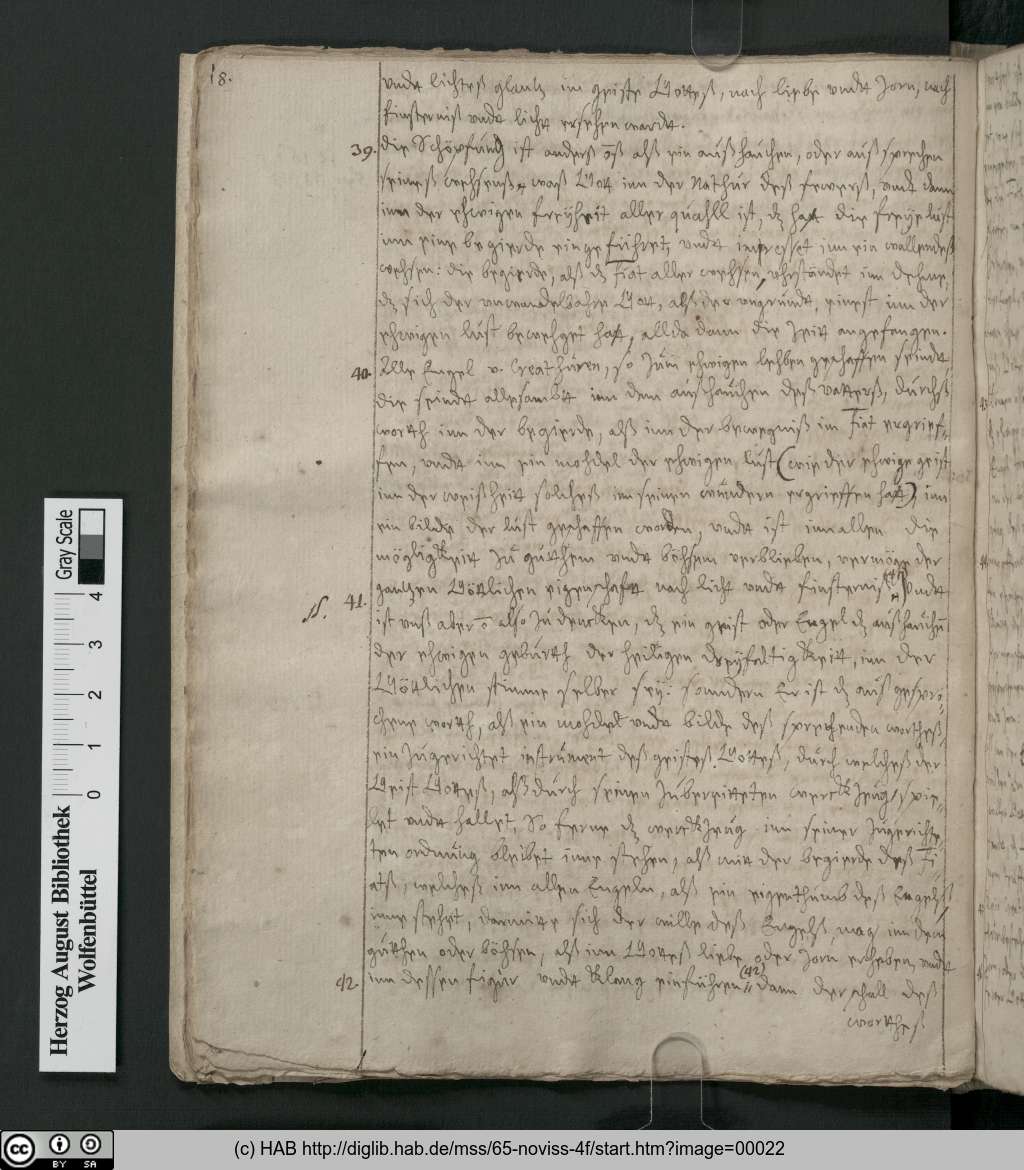 18.
undt lichtess glantz im geiste Gottess, nach liebe undt Zorn, nach
finsterniss undt licht ersehen wardt.
39. die Schöpfung ist anderss ōss alss ein aussshauchen, oder aussprechen
seiness wehsenss, wass Gott inn der Nathur dess fewerss, undt dann
inn der ehwigen freyheit aller quahll ist, dz hatt die freye lust
inn eine begierde eingeführet, undt impresset inn ein wallendess
wehsen: die begierde, alss dz fiat aller wehsen, uhrständet inn dehme,
dz sich der unwandelbahre Gott, alss der ungrundt, einest inn der
ehwigen lust beweghet hatt, allda dann die Zeitt angefangen.
40. Alle Engel v. Creathuren, so zum ehwigen lehben geschaffen seindt
die seindt allesambtt inn dem ausshauchen dess vatterss, durchss
worth inn der begierde, alss inn der bewegniss im Fiat ergrif-
fen, undt inn ein mohdel der ehwigen lust (wie der ehwige geist
inn der weissheitt solchess in seinen wundern ergrieffen hatt), inn
ein bilde der lust geschaffen worden, undt ist inn allen die
mögligkeitt zu guthem undt böhsem verblieben, vermöge der
gantzen Göttlichen eigenschafft nach licht undt finsterniss (41) Undt
41. ist unss aber ō also zu dencken, dz ein geist oder Engel dz ausshauchen
der ehwigen geburth der heiligen dreyfaltigkeitt, inn der
Göttlichen stimme selber sey: sonndern Er ist dz aussgespro-
chene worth, alss ein mohdel undt bilde dess sprechenden worthess,
ein zugerichtet instrument dess geistess Gottess, durch welchess der
Geist Gottess, alss durch seinen zubereitteten werckzeug, spie-
let undt hallet, So ferne dz werckzeug inn seiner zugerichte-
ten ordnung bleibet inne stehen, alss mit der begierde dess Fi-
atss, welchess inn allen Engeln, alss ein eigenthumb dess Engelss
inne stehet, darmitte sich der wille dess Engelss, mag inn dem
guthen oder böhsen, alss inn Gottess liebe oder Zorn erheben, undt
42. inn dessen figur undt Klang einführen: (42) dann der schall dess
worthess
Herzog August Bibliothek
Wolfenbüttel
0 1 2 3 4
Gray Scale
cc BY SA
(c) HAB http://diglib.hab.de/mss/65-noviss-4f/start.htm?image=00022